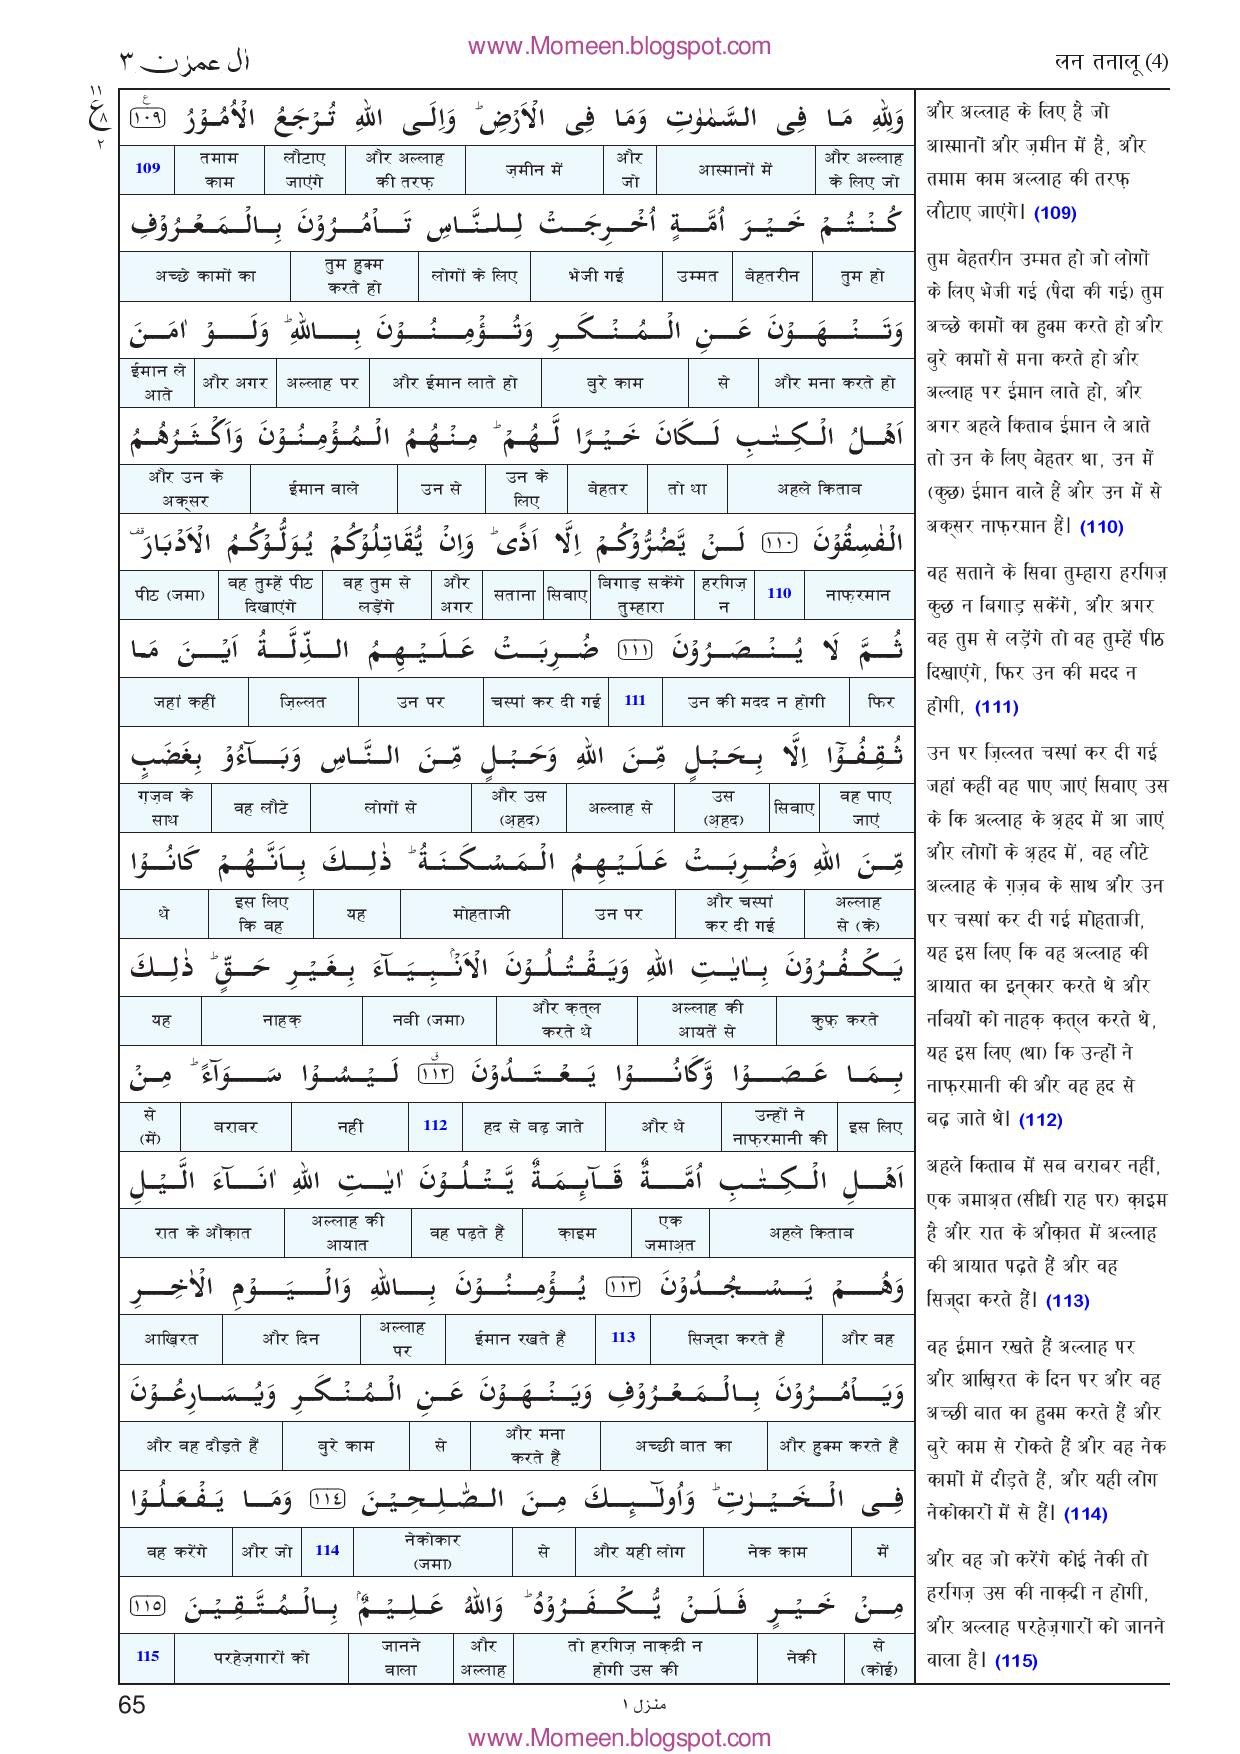 www.Momeen.blogspot.com
اٰل عمرٰن ٣
लन तनालू (4)
١١
ع
٨
٢
وَلِلّٰهِ مَا فِى السَّمٰوٰتِ وَمَا فِى الْاَرْضِ ؕ وَاِلَى اللّٰهِ تُرْجَعُ الْاُمُوْرُ ﴿١٠٩﴾
और अल्लाह के लिए जो | आस्मानों में | और जो | ज़मीन में | और अल्लाह की तरफ़ | लौटाए जाएंगे | तमाम काम | 109
كُنْتُمْ خَيْرَ اُمَّةٍ اُخْرِجَتْ لِلنَّاسِ تَاْمُرُوْنَ بِالْمَعْرُوْفِ
तुम हो | बेहतरीन | उम्मत | भेजी गई | लोगों के लिए | तुम हुक्म करते हो | अच्छे कामों का
وَتَنْهَوْنَ عَنِ الْمُنْكَرِ وَتُؤْمِنُوْنَ بِاللّٰهِ ؕ وَلَوْ اٰمَنَ
और मना करते हो | से | बुरे काम | और ईमान लाते हो | अल्लाह पर | और अगर | ईमान ले आते
اَهْلُ الْكِتٰبِ لَكَانَ خَيْرًا لَّهُمْ ؕ مِنْهُمُ الْمُؤْمِنُوْنَ وَاَكْثَرُهُمُ
अहले किताब | तो था | बेहतर | उन के लिए | उन से | ईमान वाले | और उन के अक्सर
الْفٰسِقُوْنَ ﴿١١٠﴾ لَنْ يَّضُرُّوْكُمْ اِلَّا اَذًى ؕ وَاِنْ يُّقَاتِلُوْكُمْ يُوَلُّوْكُمُ الْاَدْبَارَ ۟
नाफ़रमान | 110 | हरगिज़ न | बिगाड़ सकेंगे तुम्हारा | सिवाए | सताना | और अगर | वह तुम से लड़ेंगे | वह तुम्हें पीठ दिखाएंगे | पीठ (जमा)
ثُمَّ لَا يُنْصَرُوْنَ ﴿١١١﴾ ضُرِبَتْ عَلَيْهِمُ الذِّلَّةُ اَيْنَ مَا
फिर | उन की मदद न होगी | 111 | चस्पां कर दी गई | उन पर | ज़िल्लत | जहां कहीं
ثُقِفُوْۤا اِلَّا بِحَبْلٍ مِّنَ اللّٰهِ وَحَبْلٍ مِّنَ النَّاسِ وَبَآءُوْ بِغَضَبٍ
वह पाए जाएं | सिवाए | उस (अ़हद) | अल्लाह से | और उस (अ़हद) | लोगों से | वह लौटे | ग़ज़ब के साथ
مِّنَ اللّٰهِ وَضُرِبَتْ عَلَيْهِمُ الْمَسْكَنَةُ ؕ ذٰلِكَ بِاَنَّهُمْ كَانُوْا
अल्लाह से (के) | और चस्पां कर दी गई | उन पर | मोहताजी | यह | इस लिए कि वह | थे
يَكْفُرُوْنَ بِاٰيٰتِ اللّٰهِ وَيَقْتُلُوْنَ الْاَنْۢبِيَآءَ بِغَيْرِ حَقٍّ ؕ ذٰلِكَ
कुफ़्र करते | अल्लाह की आयतें से | और क़त्ल करते थे | नबी (जमा) | नाहक़ | यह
بِمَا عَصَوْا وَّكَانُوْا يَعْتَدُوْنَ ﴿١١٢﴾ لَيْسُوْا سَوَآءً ؕ مِنْ
इस लिए | उन्हों ने नाफ़रमानी की | और थे | हद से बढ़ जाते | 112 | नहीं | बराबर | से (में)
اَهْلِ الْكِتٰبِ اُمَّةٌ قَآىِٕمَةٌ يَّتْلُوْنَ اٰيٰتِ اللّٰهِ اٰنَآءَ الَّيْلِ
अहले किताब | एक जमाअ़त | क़ाइम | वह पढ़ते हैं | अल्लाह की आयात | रात के औक़ात
وَهُمْ يَسْجُدُوْنَ ﴿١١٣﴾ يُؤْمِنُوْنَ بِاللّٰهِ وَالْيَوْمِ الْاٰخِرِ
और वह | सिज्दा करते हैं | 113 | ईमान रखते हैं | अल्लाह पर | और दिन | आख़िरत
وَيَاْمُرُوْنَ بِالْمَعْرُوْفِ وَيَنْهَوْنَ عَنِ الْمُنْكَرِ وَيُسَارِعُوْنَ
और हुक्म करते हैं | अच्छी बात का | और मना करते हैं | से | बुरे काम | और वह दौड़ते हैं
فِى الْخَيْرٰتِ ؕ وَاُولٰٓىِٕكَ مِنَ الصّٰلِحِيْنَ ﴿١١٤﴾ وَمَا يَفْعَلُوْا
में | नेक काम | और यही लोग | से | नेकोकार (जमा) | 114 | और जो | वह करेंगे
مِنْ خَيْرٍ فَلَنْ يُّكْفَرُوْهُ ؕ وَاللّٰهُ عَلِيْمٌۢ بِالْمُتَّقِيْنَ ﴿١١٥﴾
से (कोई) | नेकी | तो हरगिज़ नाक़द्री न होगी उस की | और अल्लाह | जानने वाला | परहेज़गारों को | 115
और अल्लाह के लिए है जो
आस्मानों और ज़मीन में है, और
तमाम काम अल्लाह की तरफ़
लौटाए जाएंगे। (109)
तुम बेहतरीन उम्मत हो जो लोगों
के लिए भेजी गई (पैदा की गई) तुम
अच्छे कामों का हुक्म करते हो और
बुरे कामों से मना करते हो और
अल्लाह पर ईमान लाते हो, और
अगर अहले किताब ईमान ले आते
तो उन के लिए बेहतर था, उन में
(कुछ) ईमान वाले हैं और उन में से
अक्सर नाफ़रमान हैं। (110)
वह सताने के सिवा तुम्हारा हरगिज़
कुछ न बिगाड़ सकेंगे, और अगर
वह तुम से लड़ेंगे तो वह तुम्हें पीठ
दिखाएंगे, फिर उन की मदद न
होगी, (111)
उन पर ज़िल्लत चस्पां कर दी गई
जहां कहीं वह पाए जाएं सिवाए उस
के कि अल्लाह के अ़हद में आ जाएं
और लोगों के अ़हद में, वह लौटे
अल्लाह के ग़ज़ब के साथ और उन
पर चस्पां कर दी गई मोहताजी,
यह इस लिए कि वह अल्लाह की
आयात का इन्कार करते थे और
नबियों को नाहक़ क़त्ल करते थे,
यह इस लिए (था) कि उन्हों ने
नाफ़रमानी की और वह हद से
बढ़ जाते थे। (112)
अहले किताब में सब बराबर नहीं,
एक जमाअ़त (सीधी राह पर) क़ाइम
है और रात के औक़ात में अल्लाह
की आयात पढ़ते हैं और वह
सिज्दा करते हैं। (113)
वह ईमान रखते हैं अल्लाह पर
और आख़िरत के दिन पर और वह
अच्छी बात का हुक्म करते हैं और
बुरे काम से रोकते हैं और वह नेक
कामों में दौड़ते हैं, और यही लोग
नेकोकारों में से हैं। (114)
और वह जो करेंगे कोई नेकी तो
हरगिज़ उस की नाक़द्री न होगी,
और अल्लाह परहेज़गारों को जानने
वाला है। (115)
65
منزل ١
www.Momeen.blogspot.com